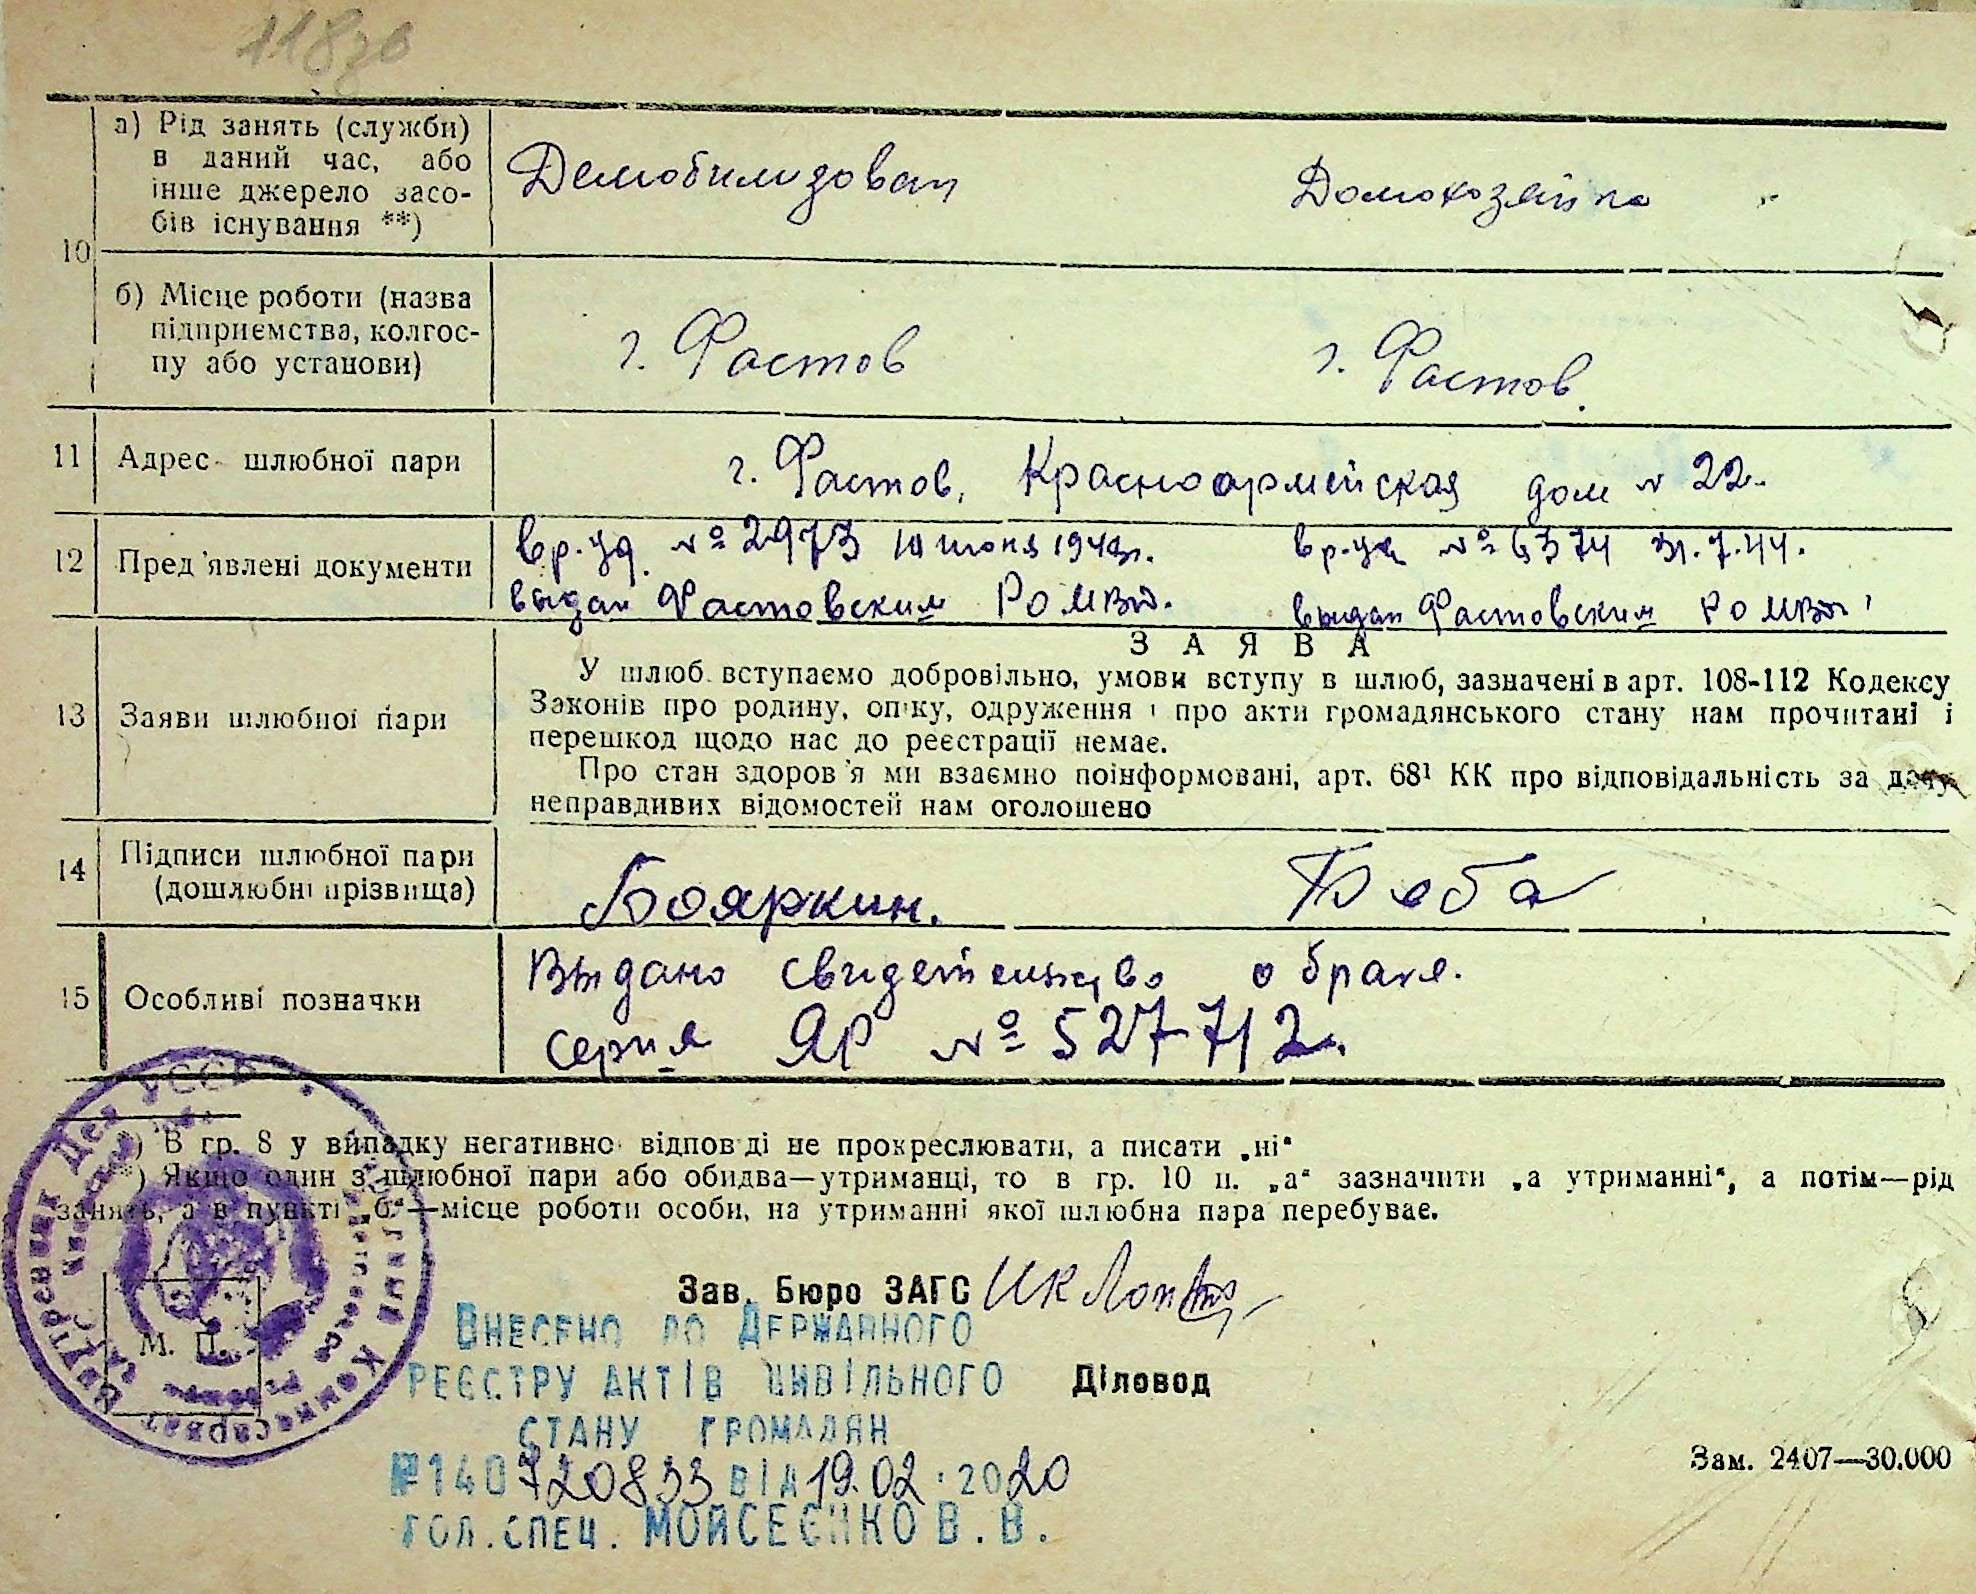 а) Рід занять (служби)
в даний час, або
інше джерело засо-
бів існування **)
Демобилизован
Домохозяйка
10
б) Місце роботи (назва
підприємства, колгос-
пу або установи)
г. Фастов
г. Фастов.
11
Адрес шлюбної пари
г. Фастов, Красноармейская дом № 22.
12
Пред'явлені документи
вр. уд. № 2973
вр. уд № 6374 31.7.44.
выдан Фастовским РО МВД.
выдан Фастовским РО МВД
13
Заяви шлюбної пари
ЗАЯВА
У шлюб вступаємо добровільно, умови вступу в шлюб, зазначені в арт. 108-112 Кодексу
Законів про родину, опіку, одруження і про акти громадянського стану нам прочитані і
перешкод щодо нас до реєстрації немає.
Про стан здоров'я ми взаємно поінформовані, арт. 68¹ КК про відповідальність за дачу
неправдивих відомостей нам оголошено
14
Підписи шлюбної пари
(дошлюбні прізвища)
Бояркин.
15
Особливі позначки
Выдано свидетельство о браке.
серия ЯР № 527712.
*) В гр. 8 у випадку негативної відповіді не прокреслювати, а писати „ні“
**) Якщо один з шлюбної пари або обидва—утриманці, то в гр. 10 п. „а“ зазначити „а утриманні“, а потім—рід
занять, а в пункті „б“—місце роботи особи, на утриманні якої шлюбна пара перебуває.
Зав. Бюро ЗАГС
М. П.
Діловод
ВНЕСЕНО ДО ДЕРЖАВНОГО
РЕЄСТРУ АКТІВ ЦИВІЛЬНОГО
СТАНУ ГРОМАДЯН
№ 140720833 ВІД 19.02.2020
ГОЛ.СПЕЦ. МОЙСЕЄНКО В.В.
Зам. 2407—30.000